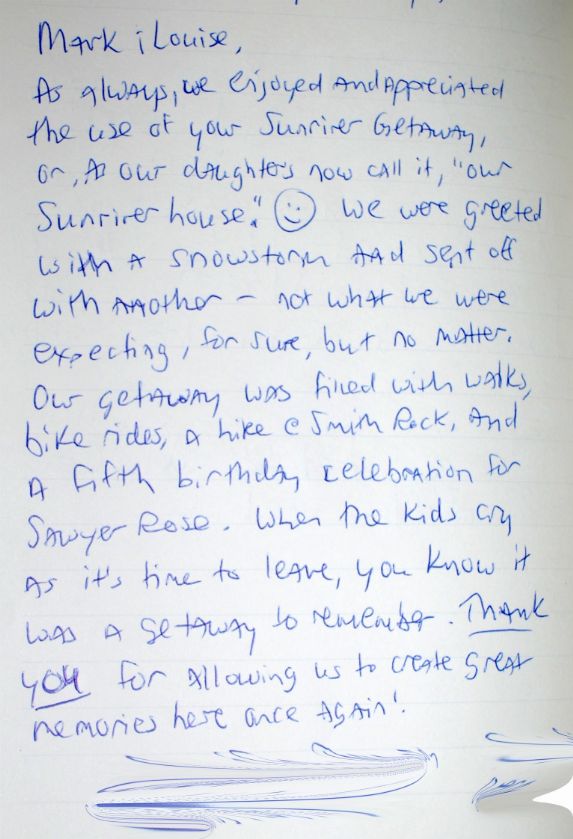 Mark & Louise,
As always, we enjoyed and appreciated
the use of your Sunriver Getaway,
or, as our daughters now call it, "our
Sunriver house." We were greeted
with a snowstorm and sent off
with another – not what we were
expecting, for sure, but no matter.
Our getaway was filled with walks,
bike rides, a hike @ Smith Rock, and
a fifth birthday celebration for
Sawyer Rose. When the kids cry
as it's time to leave, you know it
was a getaway to remember. Thank
you for allowing us to create great
memories here once again!